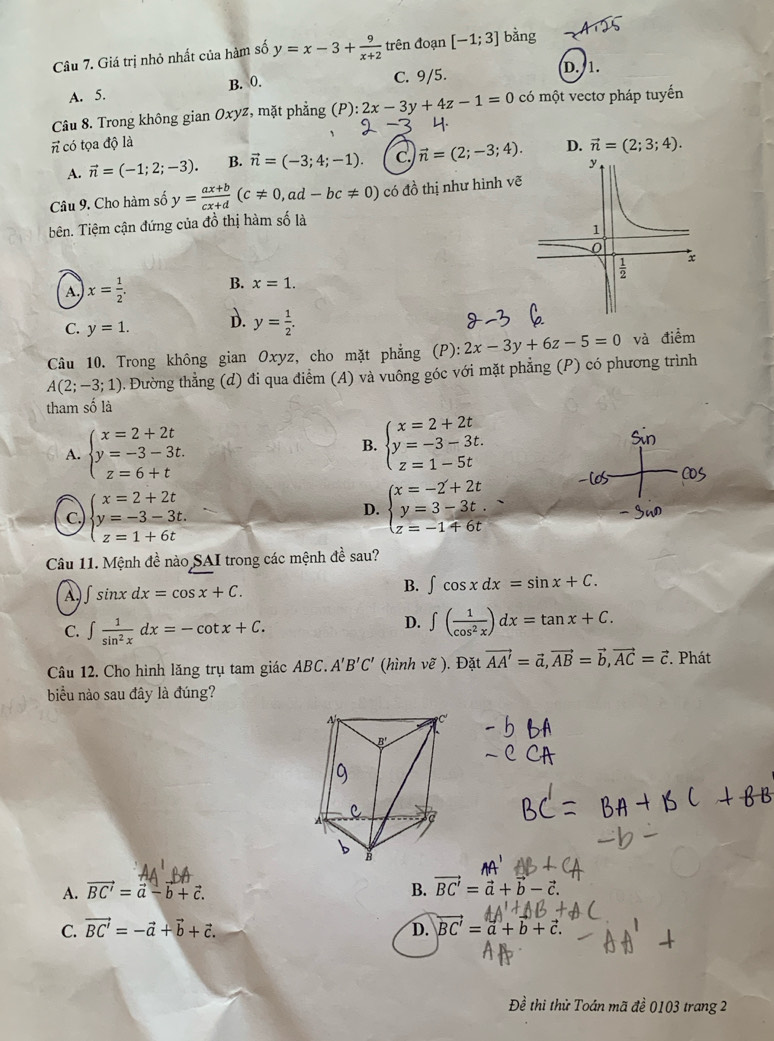 Câu 7. Giá trị nhỏ nhất của hàm số y = x − 3 + 9/(x+2) trên đoạn [−1; 3] bằng
A. 5. B. 0. C. 9/5. D. 1.
Câu 8. Trong không gian Oxyz, mặt phẳng (P): 2x − 3y + 4z − 1 = 0 có một vectơ pháp tuyến
2 −3 4.
n⃗ có tọa độ là
A. n⃗ = (−1; 2; −3). B. n⃗ = (−3; 4; −1). C. n⃗ = (2; −3; 4). D. n⃗ = (2; 3; 4).
Câu 9. Cho hàm số y = (ax+b)/(cx+d) (c ≠ 0, ad − bc ≠ 0) có đồ thị như hình vẽ
bên. Tiệm cận đứng của đồ thị hàm số là
y
1
O
1/2
x
A. x = 1/2. B. x = 1.
C. y = 1. D. y = 1/2.
2 −3 6
Câu 10. Trong không gian Oxyz, cho mặt phẳng (P): 2x − 3y + 6z − 5 = 0 và điểm
A(2; −3; 1). Đường thẳng (d) đi qua điểm (A) và vuông góc với mặt phẳng (P) có phương trình
tham số là
A. { x = 2 + 2t
y = −3 − 3t.
z = 6 + t
B. { x = 2 + 2t
y = −3 − 3t.
z = 1 − 5t
C. { x = 2 + 2t
y = −3 − 3t.
z = 1 + 6t
D. { x = −2 + 2t
y = 3 − 3t .
z = −1 + 6t
sin
−cos cos
− sin
Câu 11. Mệnh đề nào SAI trong các mệnh đề sau?
A. ∫ sinx dx = cos x + C. B. ∫ cos x dx = sin x + C.
C. ∫ 1/sin² x dx = − cot x + C. D. ∫ (1/cos² x) dx = tan x + C.
Câu 12. Cho hình lăng trụ tam giác ABC. A′B′C′ (hình vẽ ). Đặt AA′⃗ = a⃗, AB⃗ = b⃗, AC⃗ = c⃗. Phát
biểu nào sau đây là đúng?
A' C'
B'
a
A c C
b
B
−b BA
−c CA
BC' = BA + BC + BB'
−b −
AA' BA
A. BC′⃗ = a⃗ − b⃗ + c⃗.
AA' AB + CA
B. BC′⃗ = a⃗ + b⃗ − c⃗.
C. BC′⃗ = −a⃗ + b⃗ + c⃗.
AA' + AB + AC
D. BC′⃗ = a⃗ + b⃗ + c⃗.
− AA' +
Đề thi thử Toán mã đề 0103 trang 2